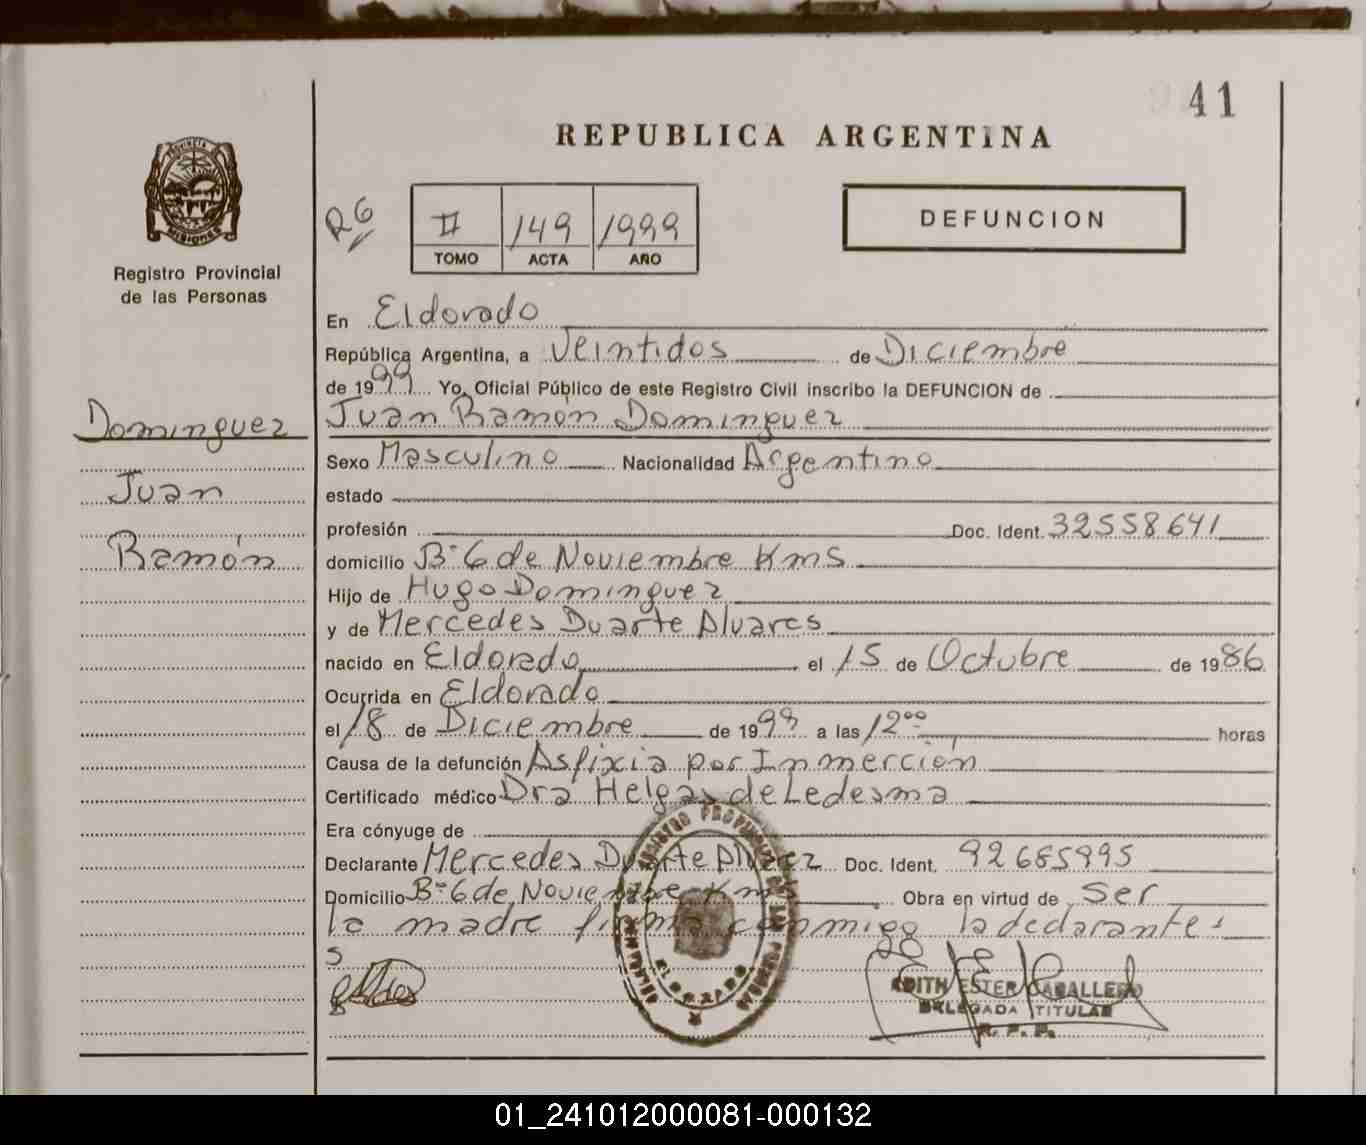 41
REPUBLICA ARGENTINA
PROVINCIA DE
MISIONES
R6
II 149 1999
TOMO ACTA AÑO
DEFUNCION
Registro Provincial
de las Personas
En Eldorado
República Argentina, a Veintidos de Diciembre
de 1999 Yo, Oficial Público de este Registro Civil inscribo la DEFUNCION de
Dominguez
Juan
Ramón
Juan Ramón Dominguez
Sexo Masculino Nacionalidad Argentino
estado
profesión Doc. Ident. 32558641
domicilio B° 6 de Noviembre Km5
Hijo de Hugo Dominguez
y de Mercedes Duarte Alvares
nacido en Eldorado el 15 de Octubre de 1986
Ocurrida en Eldorado
el 18 de Diciembre de 1999 a las 12°° horas
Causa de la defunción Asfixia por Inmerción
Certificado médico Dra Helga S de Ledesma
Era cónyuge de
Declarante Mercedes Duarte Alvarez Doc. Ident. 92685995
Domicilio B° 6 de Noviembre Km5 Obra en virtud de Ser
la madre firma conmigo la declarante
REGISTRO PROVINCIAL DE LAS PERSONAS
ELDORADO
EDITH ESTER CABALLERO
DELEGADA TITULAR
R. P. P.
01_241012000081-000132